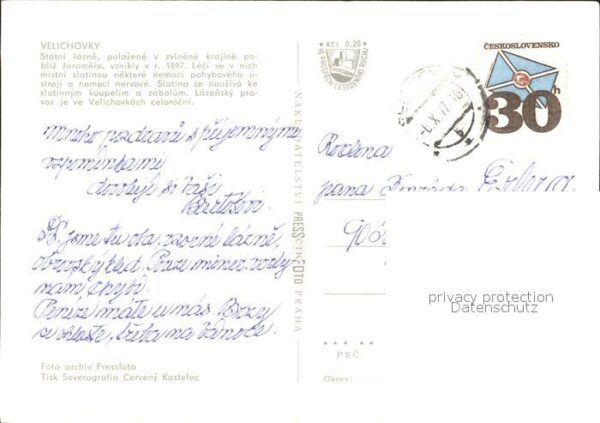 VELICHOVKY
Státní lázně, položené v zvlněné krajině po-
blíž Jaroměře, vznikly v r. 1897. Léčí se v nich
místní slatinou některé nemoci pohybového ú-
strojí a nemoci nervové. Slatina se používá ke
slatinným koupelím a zábalům. Lázeňský pro-
voz je ve Velichovkách celoroční.
Mnoho pozdravů s příjemnými
vzpomínkami
Vaši
Bartošovi.
PS. jsme tu oba, vzorné lázně,
obrovský klid. Pouze miner. vody
nám chybí.
Peníze máte u nás. Brzy
se ohlaste, třeba na Vánoce.
Foto archiv Pressfoto
Tisk Severografia Červený Kostelec
NAKLADATELSTVÍ PRESSFOTO PRAHA
ČTK
Kčs 0,20
VE PROSPĚCH CESTOVNÍHO RUCHU
ČESKOSLOVENSKO
30h
Rodina
pana
privacy protection
Datenschutz
PSČ
Okres: